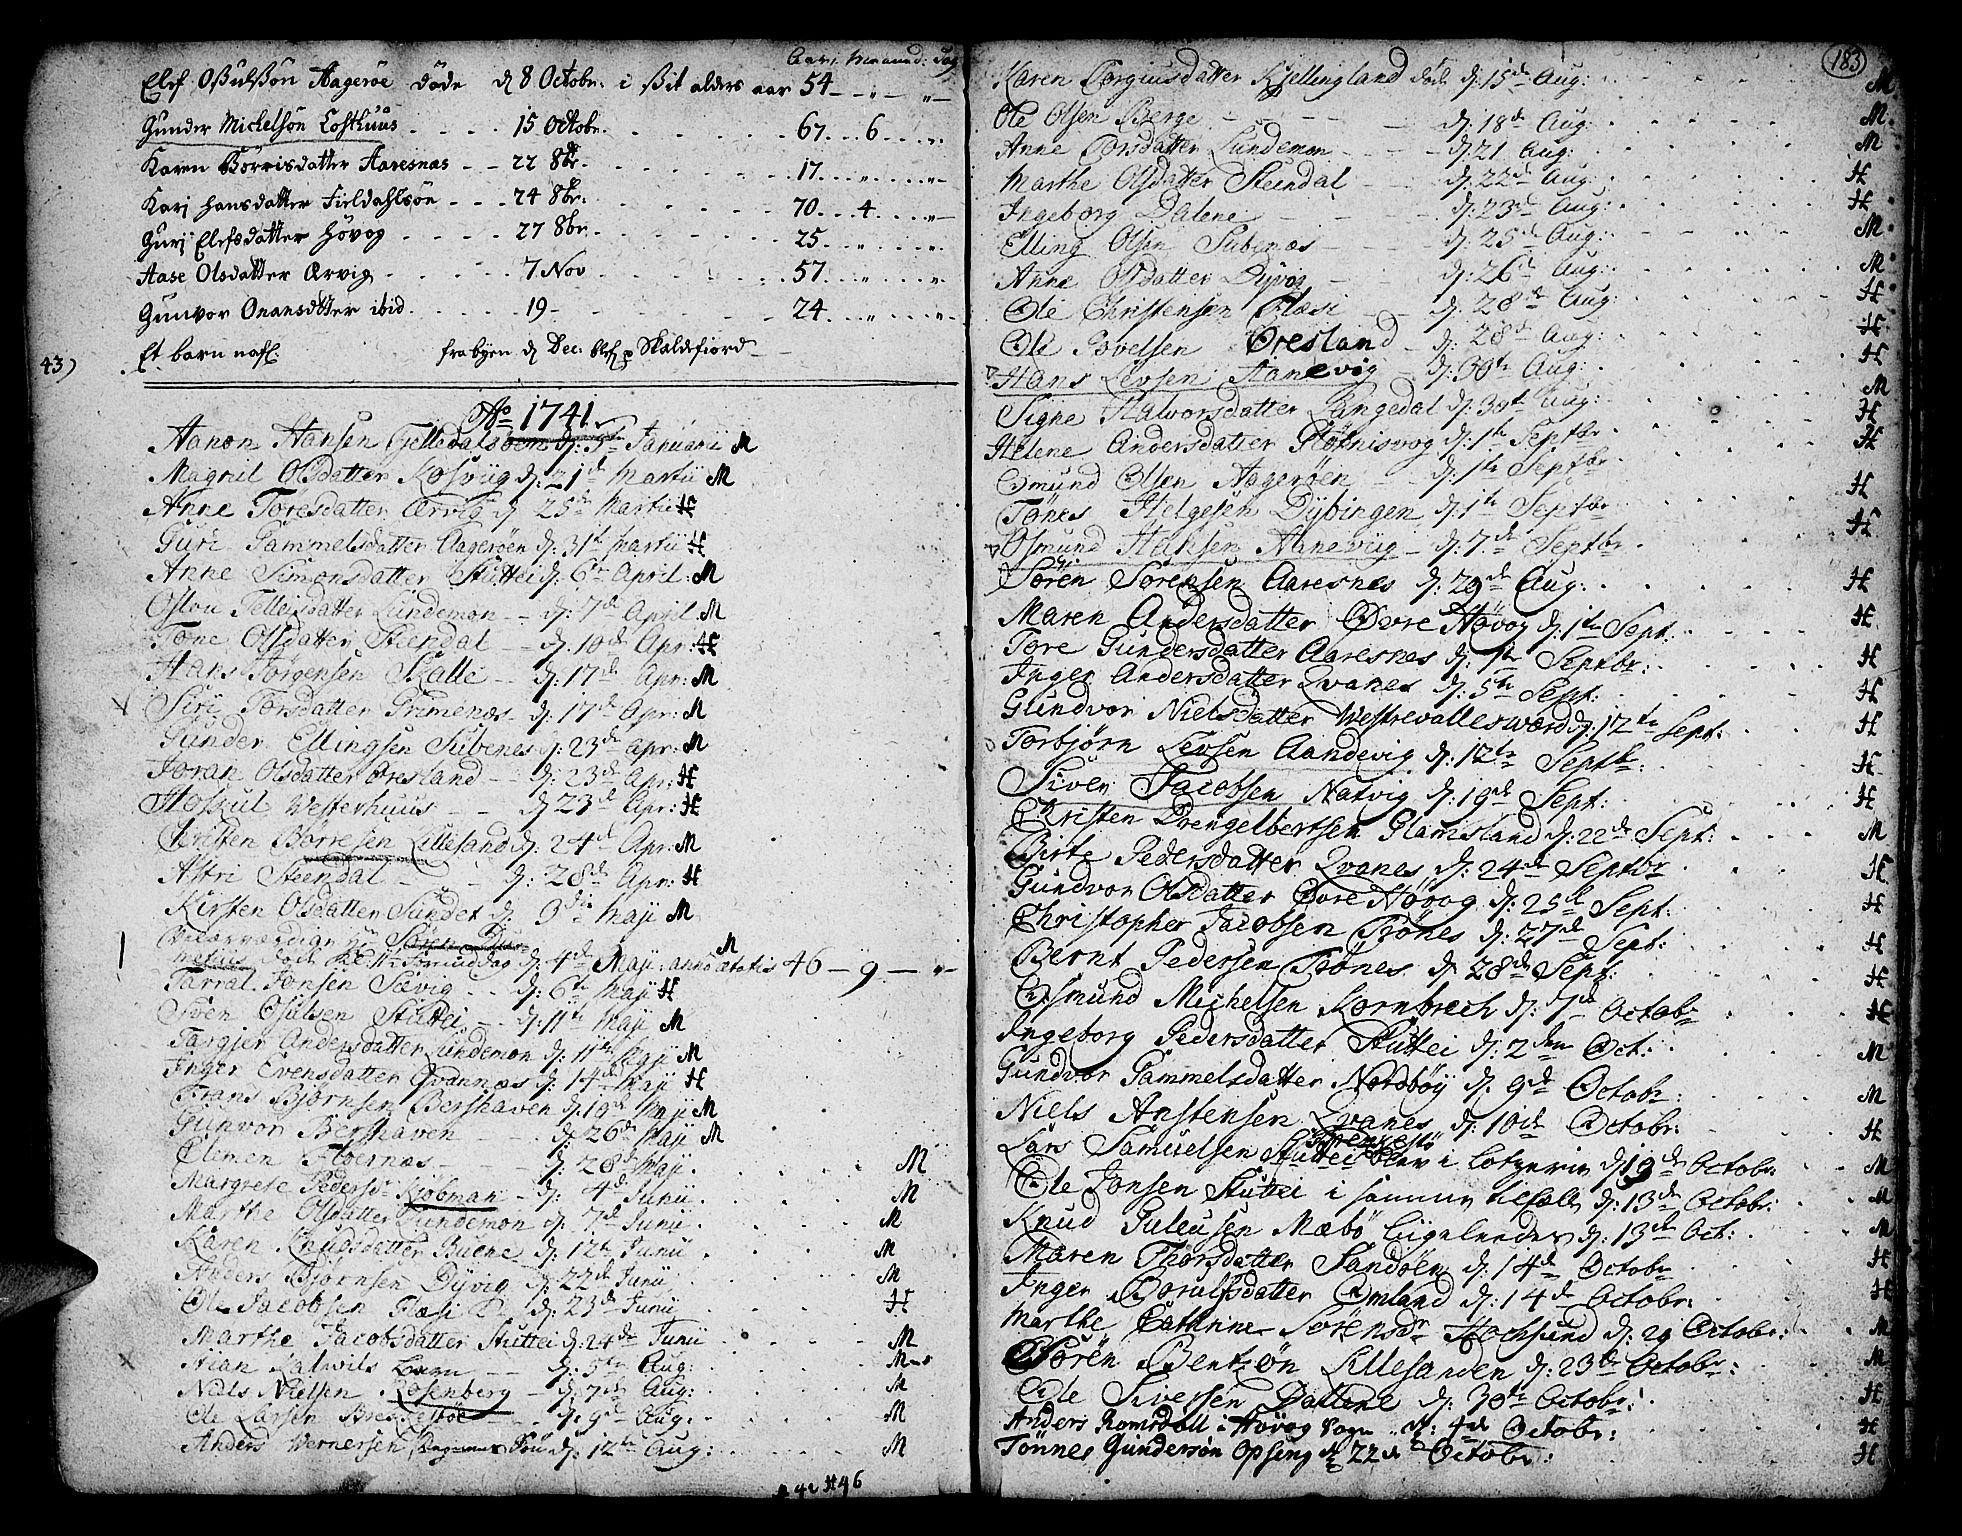 Aar: Maaned: Dag
Elef Osulssøn Aagerøe døde d 8 Octobr: i sit alders aar 54 - „ - „
Gunder Michelsøn Losthuus 15 Octobr. 67 . 6 . „
Karen Børrisdatter Aaresnas 22 8br. 17 . „ . „
Kari Hansdatter Fieldahlsøe 24 8br. 70 . 4 . „
Guri Elefsdatter Høvog 27 8br. 25 . „ . „
Aase Olsdatter Ærvig 7 Nov 57 . „ . „
Gunvor Onansdatter ibid. 19 - 24 . „ . „
43) Et barn fra byen d Dec: Skaldefiord
Ao 1741.
Aanon Hansen Tjelledalsøen d: 5te Januarii M
Magnil Olsdatter Kosviig d: 21de Martii M
Anne Toresdatter Ærvig d 25de Martii H
Guri Gammelsdatter Aagerøen d: 31te Martii H
Anne Simonsdatter Stuttei d: 6te April: M
Oslou Telleisdatter Lundemon d: 7de April: M
Tone Olsdatter Steendal d: 10de Apr: H
Hans Jørgensen Skalle d: 17de Apr: M
Siri Torsdatter Grimenæs d: 17de Apr: M
Gunder Ellingsen Subenes d: 23de Apr: M
Joran Olsdatter Øresland d: 23de Apr: H
Hoskul Westerhuus d: 23de Apr: H
Christen Børresen Lillesand d: 24de Apr: M
Astri Steendal d: 28de Apr: H
Kirsten Olsdatter Sundet d. Maji M
Velærværdige Hr Søren M
død d: 4de Maji: anno ætatis 46 - 9 - „
Tarral Jonsen Sævig d: 6te Maji H
Sven Osulsen Stuttei d: 11te Maji M
Targjer Andersdatter Lundemon d: 11te Maji M
Inger Evensdatter Qvannæs d: 14de Maji H
Frans Bjørnsen Bershaven d: 19de Maji M
Gunvor Bershaven d: 26de Maji M
Clemen d: 28de Maji. M
Margrete Pedersdr Kjøbman d: 4de Junii M
Marthe Olsdatter Lundemon d: 7de Junii M
Karen Knudsdatter Buene d: 12te Junii M
Anders Bjørnsen Dyvig d: 22de Junii M
Ole Jacobsen Flæsi d: 23de Junii H
Marthe Jacobsdatter Stuttei d: 24de Junii M
barn d: 5te Aug: M
Niels Nielsen Rosenberg d: 7de Aug: M
Ole Larsen Brekkestøe d: 9de Aug: M
Anders Wernersen d: 12te Aug: M
M 42 H 46
183
Karen Torgiusdatter Kjellingland død d: 15de Aug: M
Ole Olsen Berge d: 18de Aug: M
Anne Torsdatter Lundemon d: 21 Aug: M
Marthe Olsdatter Steendal d: 22de Aug: H
Ingeborg Dalene d: 23de Aug: H
Elling Olsen Subenæs d: 25de Aug: M
Anne Olsdatter Dyvog d: 26de Aug: M
Ole Christensen Flæsi d: 28de Aug: H
Ole Povelsen Øresland d: 28de Aug: H
Hans Levsen Aanevig d: 30te Aug: H
Signe Halvorsdatter Langedal d: 30te Aug: M
Helene Andersdatter Gløbnisvog d: 1te Septbr H
Osmund Olsen Aagerøen d: 1te Septbr H
Tønes Helgesen Dybingen d: 1te Septbr H
Osmund Hansen Aaneviig d: 7de Septbr H
Søren Sørensen Aaresnes d: 29de Aug: H
Maren Andersdatter Øvre Høvog d: 1te Sept: H
Tore Gundersdatter Aaresnes d: 1te Septbr: H
Inger Andersdatter Qvanes d: 5te Sept: H
Gundvor Nielsdatter Westrevallesværd d: 12te Sept: H
Torbjørn Levsen Aandevig d: 12te Septbr: H
Siver Jacobsen Natvig d: 19de Sept: H
Christen Drengelbertsen Glamsland d: 22de Sept: M
Birte Pedersdatter Qvanes d: 24de Septbr H
Gundvor Olsdatter Øvre Høvog d: 25de Sept: H
Christopher Jacobsen Trønes d: 27de Sept: H
Bernt Pedersen Trønes d 28de Sept: H
Osmund Michelsen Kornbrech d: 7de Octobr H
Ingeborg Pedersdatter Stuttei d: 2den Oct: M
Gundvor Gammelsdatter Nordbøy d. 9de Octobr: M
Niels Anstensen Qvanes d: 10de Octobr: H
Lars Samuelsen Stuttei Brekkestø blev i Lotzerie d: 13de Octobr: M
Ole Jonsen Stuttei i samme tilfælde d: 13de Octobr: M
Knud Guleusen Mæbø Liigeledes d: 13de Oct: M
Maren Thorsdatter Sandøen d: 14de Octobr H
Inger Borulfsdatter Omland d: 14de Octobr: H
Marthe Cathrine Sørensdr Hochsund d: 29 Octobr: M
Søren Bentzøn Lillesanden d: 23de Octobr: M
Ole Siversen Dattene d: 30te Octobr: H
Anders Romsdall i Høvog Sogn d: 4de Octobr: H
Tønnes Gundersøn Opseng d 22de Octobr: H